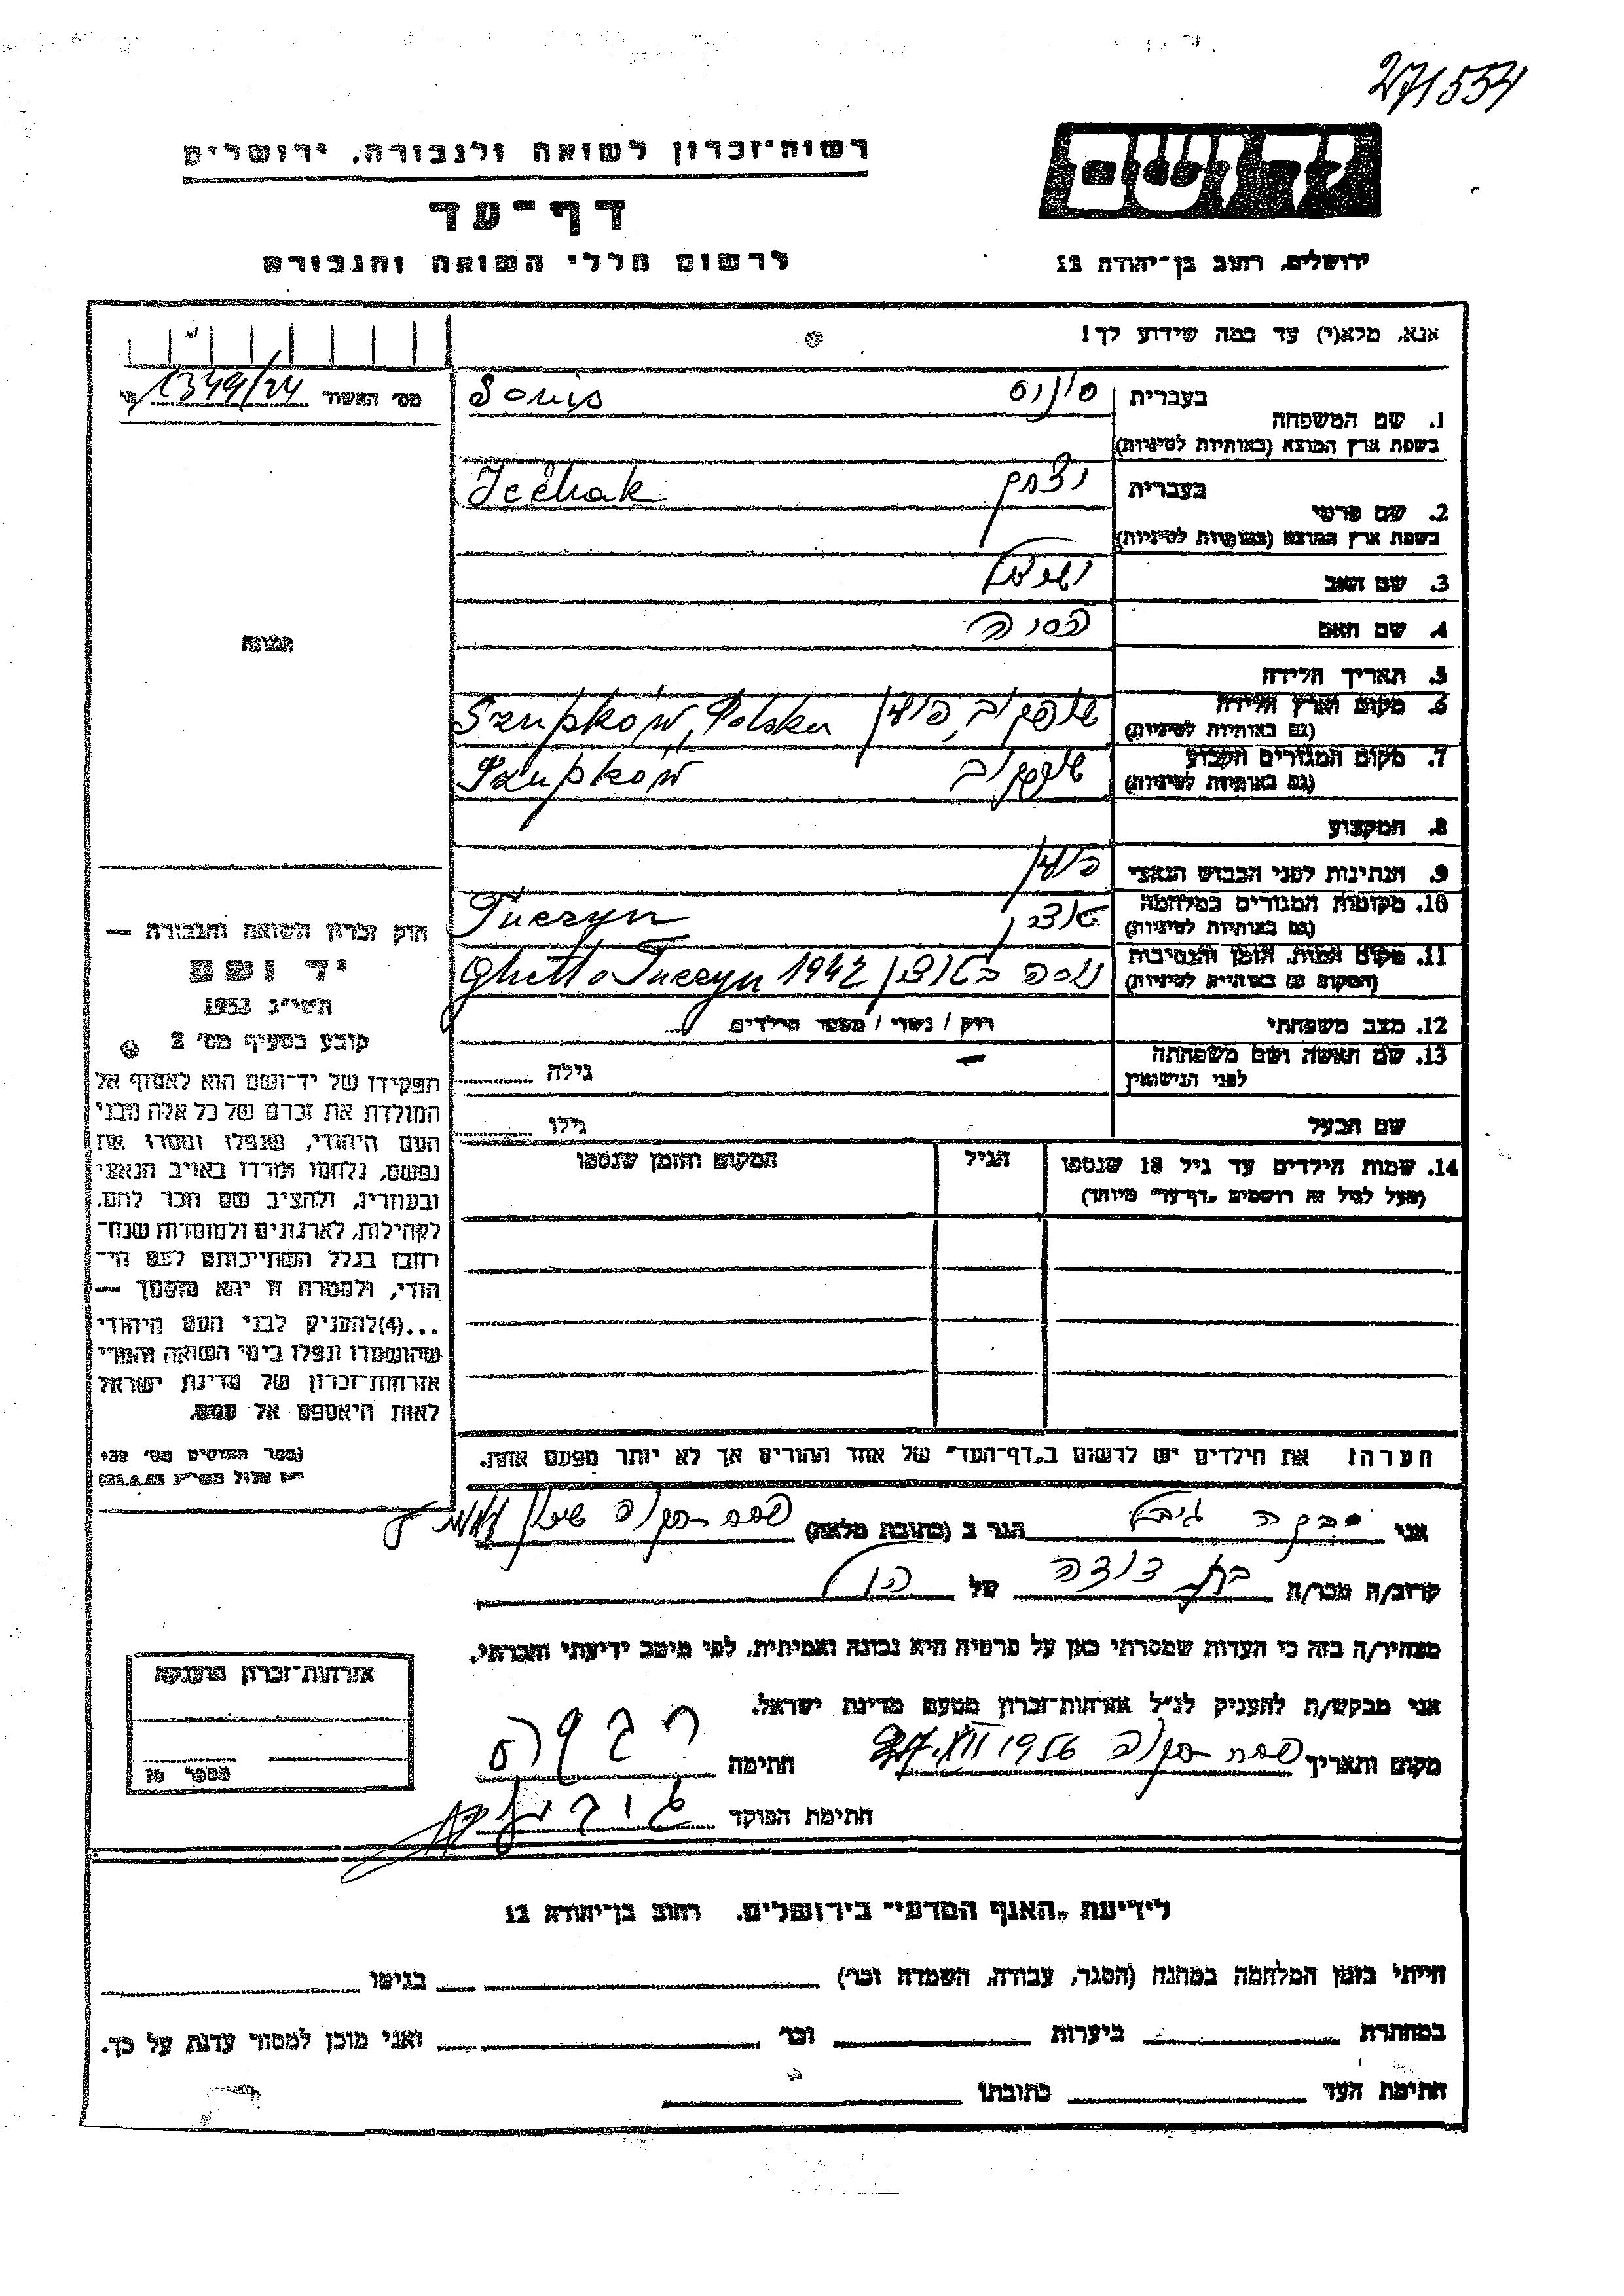 271554
רשות־זכרון לשואה ולגבורה, ירושלים
יד ושם
דף־עד
לרשום חללי השואה והגבורה
ירושלים, רחוב בן־יהודה 12
אנא, מלא(י) עד כמה שידוע לך!
מס׳ האשור 1349/24
1. שם המשפחה בעברית סוניס Sonis
בשפת ארץ המוצא (באותיות לטיניות)
2. שם פרטי בעברית יצחק Icchak
בשפת ארץ המוצא (באותיות לטיניות)
3. שם האב ישראל
4. שם האם הסיה
5. תאריך הלידה
6. מקום וארץ הלידה שופקוב, פולין Szupków, Polska
(גם באותיות לטיניות)
7. מקום המגורים הקבוע שופקוב Szupków
(גם באותיות לטיניות)
8. המקצוע
9. הנתינות לפני הכבוש הנאצי פולין
10. מקומות המגורים במלחמה טוצין Tuczyn
(גם באותיות לטיניות)
11. מקום המות, הזמן והנסיבות נספה בטוצין Ghetto Tuczyn 1942
(המקום גם באותיות לטיניות)
12. מצב משפחתי רווק / נשוי / מספר הילדים
13. שם האשה ושם משפחתה גילה
לפני הנישואין
שם הבעל גילו
14. שמות הילדים עד גיל 18 שנספו הגיל המקום והזמן שנספו
(מעל לגיל זה רושמים „דף־עד״ מיוחד)
הערה! את הילדים יש לרשום ב„דף־העד״ של אחד ההורים אך לא יותר מפעם אחת.
תמונה
חוק זכרון השואה והגבורה —
יד ושם
תשי״ג 1953
קובע בסעיף מס׳ 2
תפקידו של יד־ושם הוא לאסוף אל
המולדת את זכרם של כל אלה מבני
העם היהודי, שנפלו ומסרו את
נפשם, נלחמו ומרדו באויב הנאצי
ובעוזריו, ולהציב שם וזכר להם,
לקהילות, לארגונים ולמוסדות שנח־
רבו בגלל השתייכותם לעם הי־
הודי, ולמטרה זו יהא מוסמך —
...(4)להעניק לבני העם היהודי
שהושמדו ונפלו בימי השואה והמרי
אזרחות־זכרון של מדינת ישראל
לאות היאספם אל עמם.
(ספר החוקים מס׳ 132
אני רבקה הגר ב (כתובת מלאה) פרדס-חנה
קרוב/ה מכר/ה בת דודה של
מצהיר/ה בזה כי העדות שמסרתי כאן על פרטיה היא נכונה ואמיתית, לפי מיטב ידיעתי והכרתי.
אני מבקש/ת להעניק לנ״ל אזרחות־זכרון מטעם מדינת ישראל.
מקום ותאריך פרדס-חנה XII 1956 חתימה רבקה
חתימת הפוקד
אזרחות־זכרון הוענקה
לידיעת „האגף המדעי״ בירושלים, רחוב בן־יהודה 12
הייתי בזמן המלחמה במחנה (הסגר, עבודה, השמדה וכו׳) בגיטו
במחתרת ביערות וכו׳ ואני מוכן למסור עדות על כך.
חתימת העד כתובתו